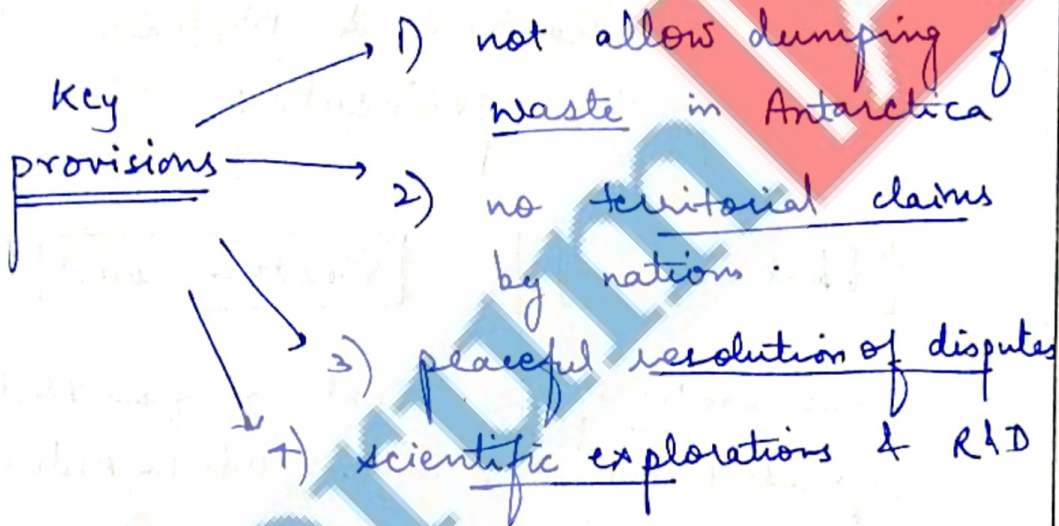 Key
provisions
1) not allow dumping of
waste in Antarctica
2) no territorial claims
by nations.
3) peaceful resolution of disputes
4) scientific explorations & R&D
rum